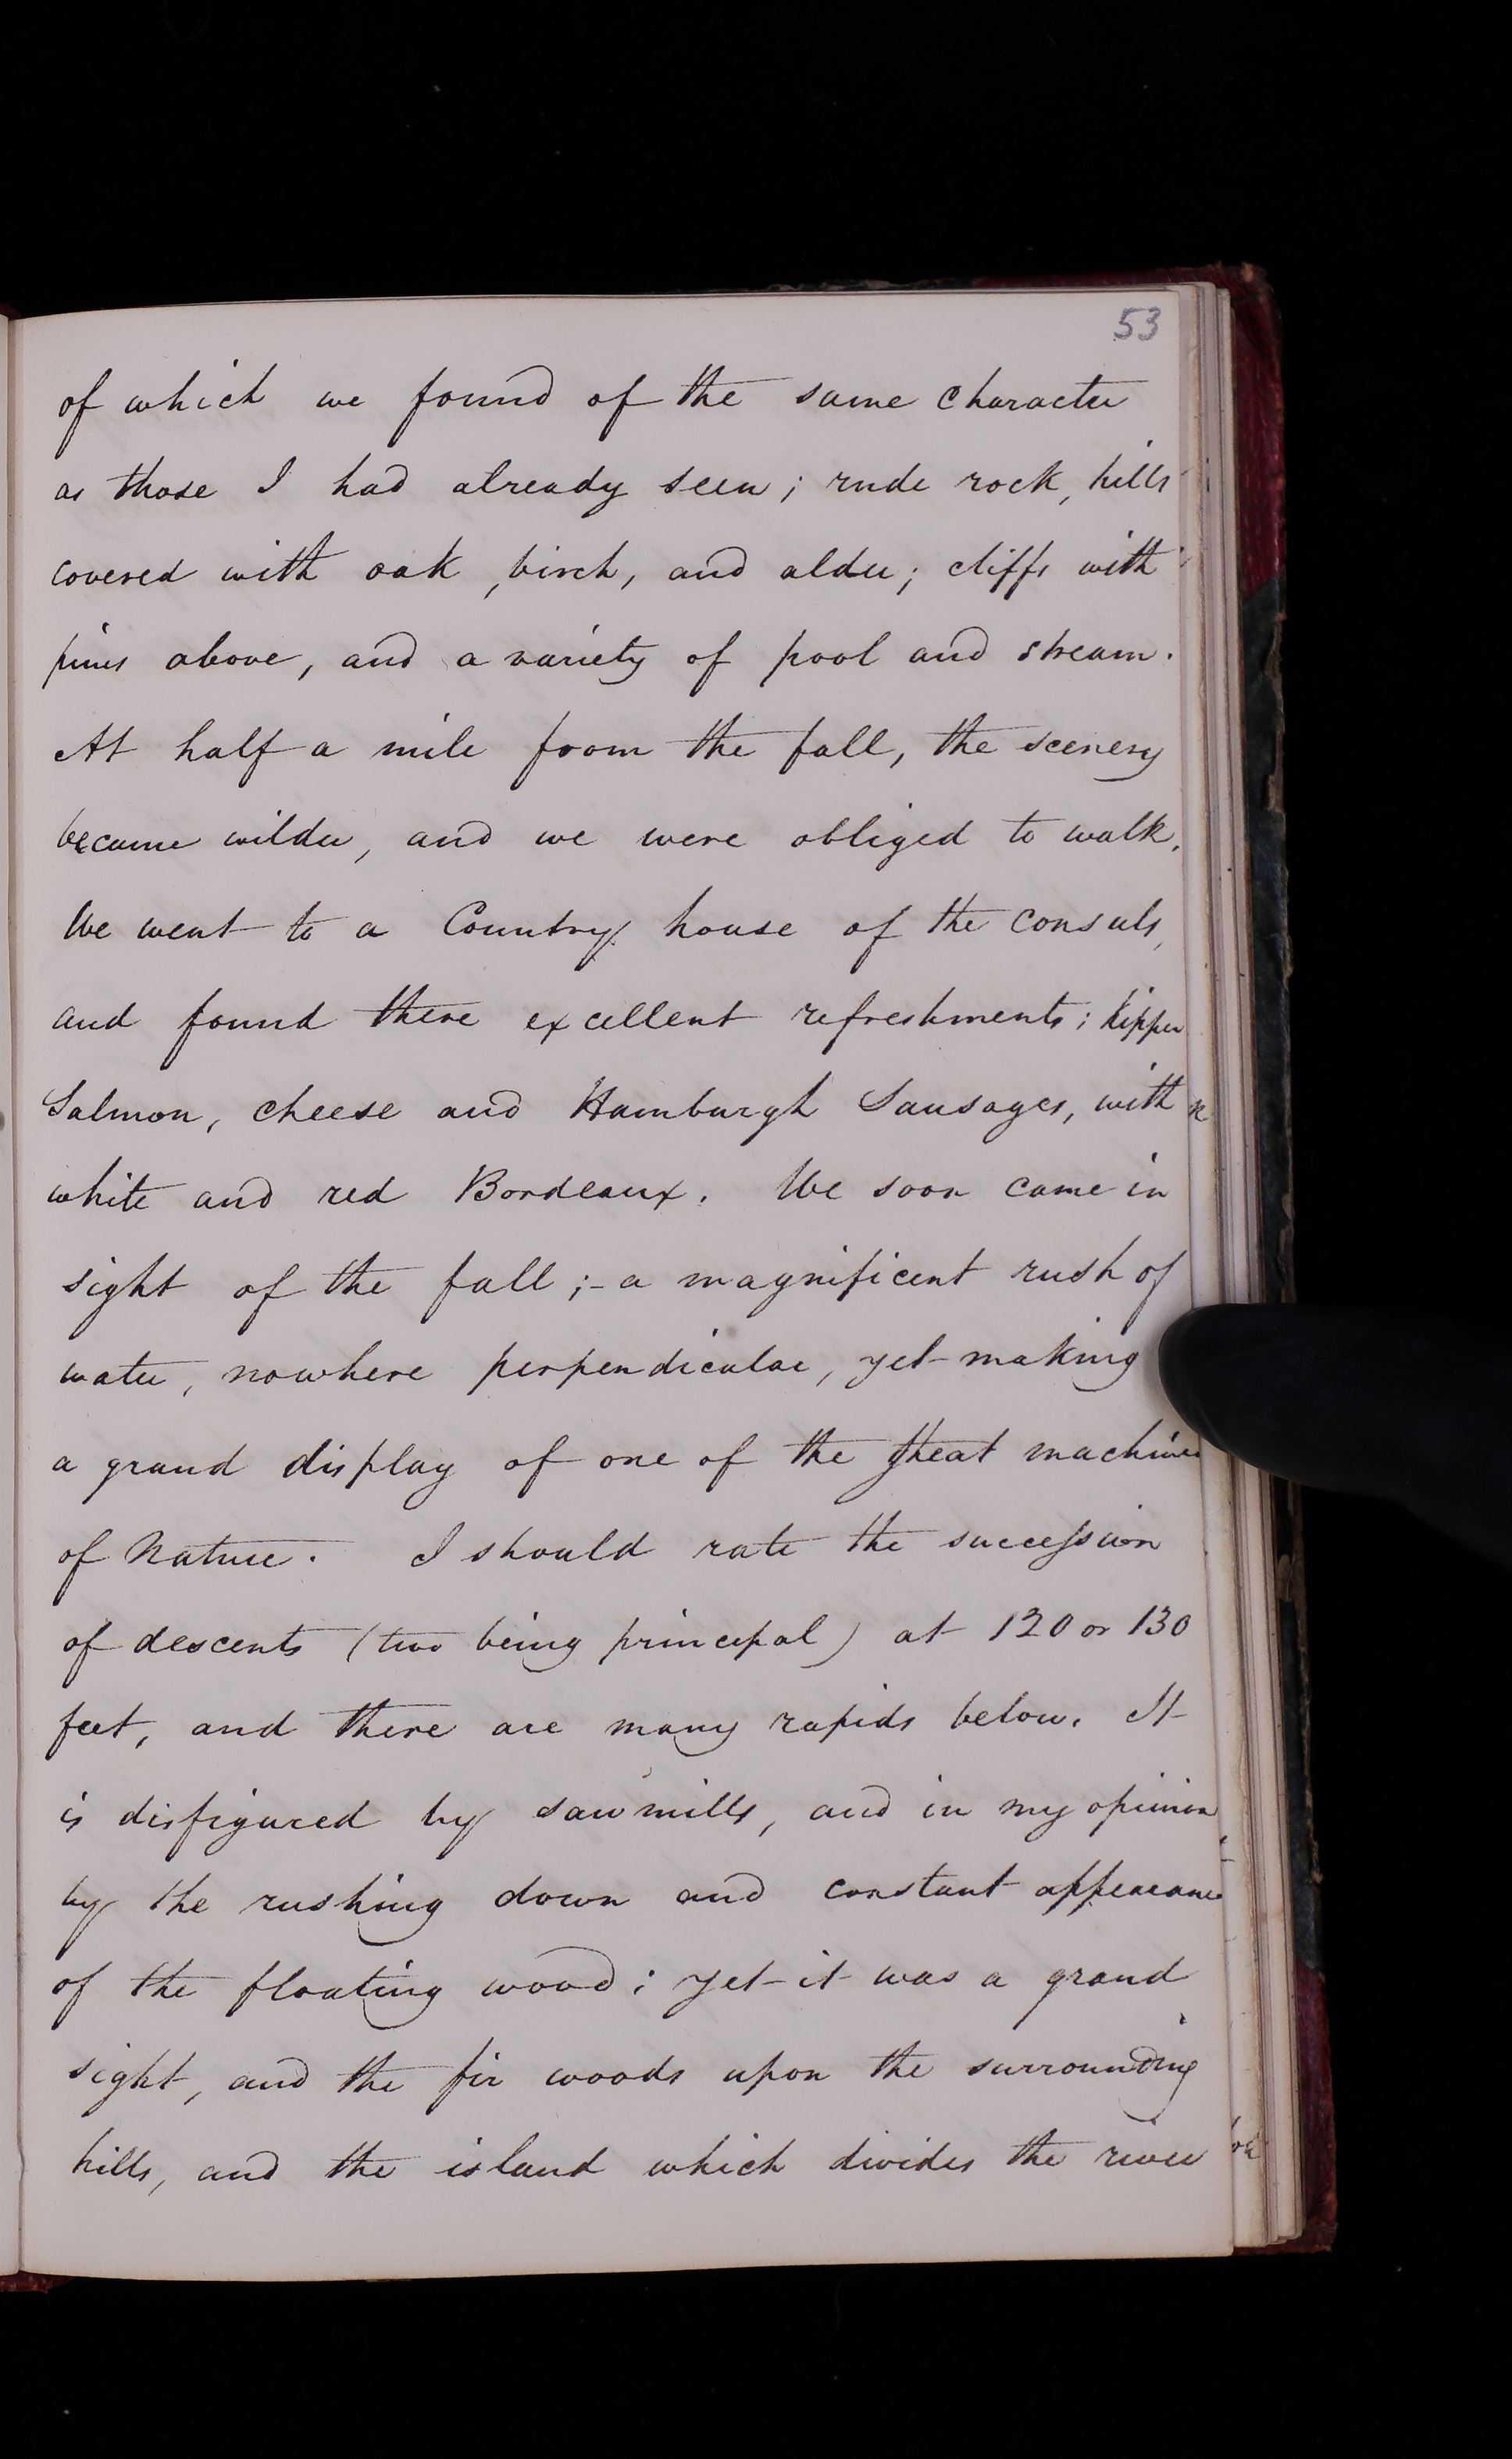 53
of which we found of the same character
as those I had already seen; rude rock, hills
covered with oak, birch, and alder; cliffs with
pines above, and a variety of pool and stream.
At half a mile from the fall, the scenery
became wilder, and we were obliged to walk.
We went to a Country house of the consuls,
and found there excellent refreshments; kipper
Salmon, cheese and Hamburgh Sausages, with
white and red Bordeaux. We soon came in
sight of the fall;- a magnificent rush of
water, nowhere perpendicular, yet making
a grand display of one of the great machines
of Nature. I should rate the succession
of descents (two being principal) at 120 or 130
feet, and there are many rapids below. It
is disfigured by sawmills, and in my opinion
by the rushing down and constant appearance
of the floating wood; yet it was a grand
sight, and the fir woods upon the surrounding
hills, and the island which divides the river